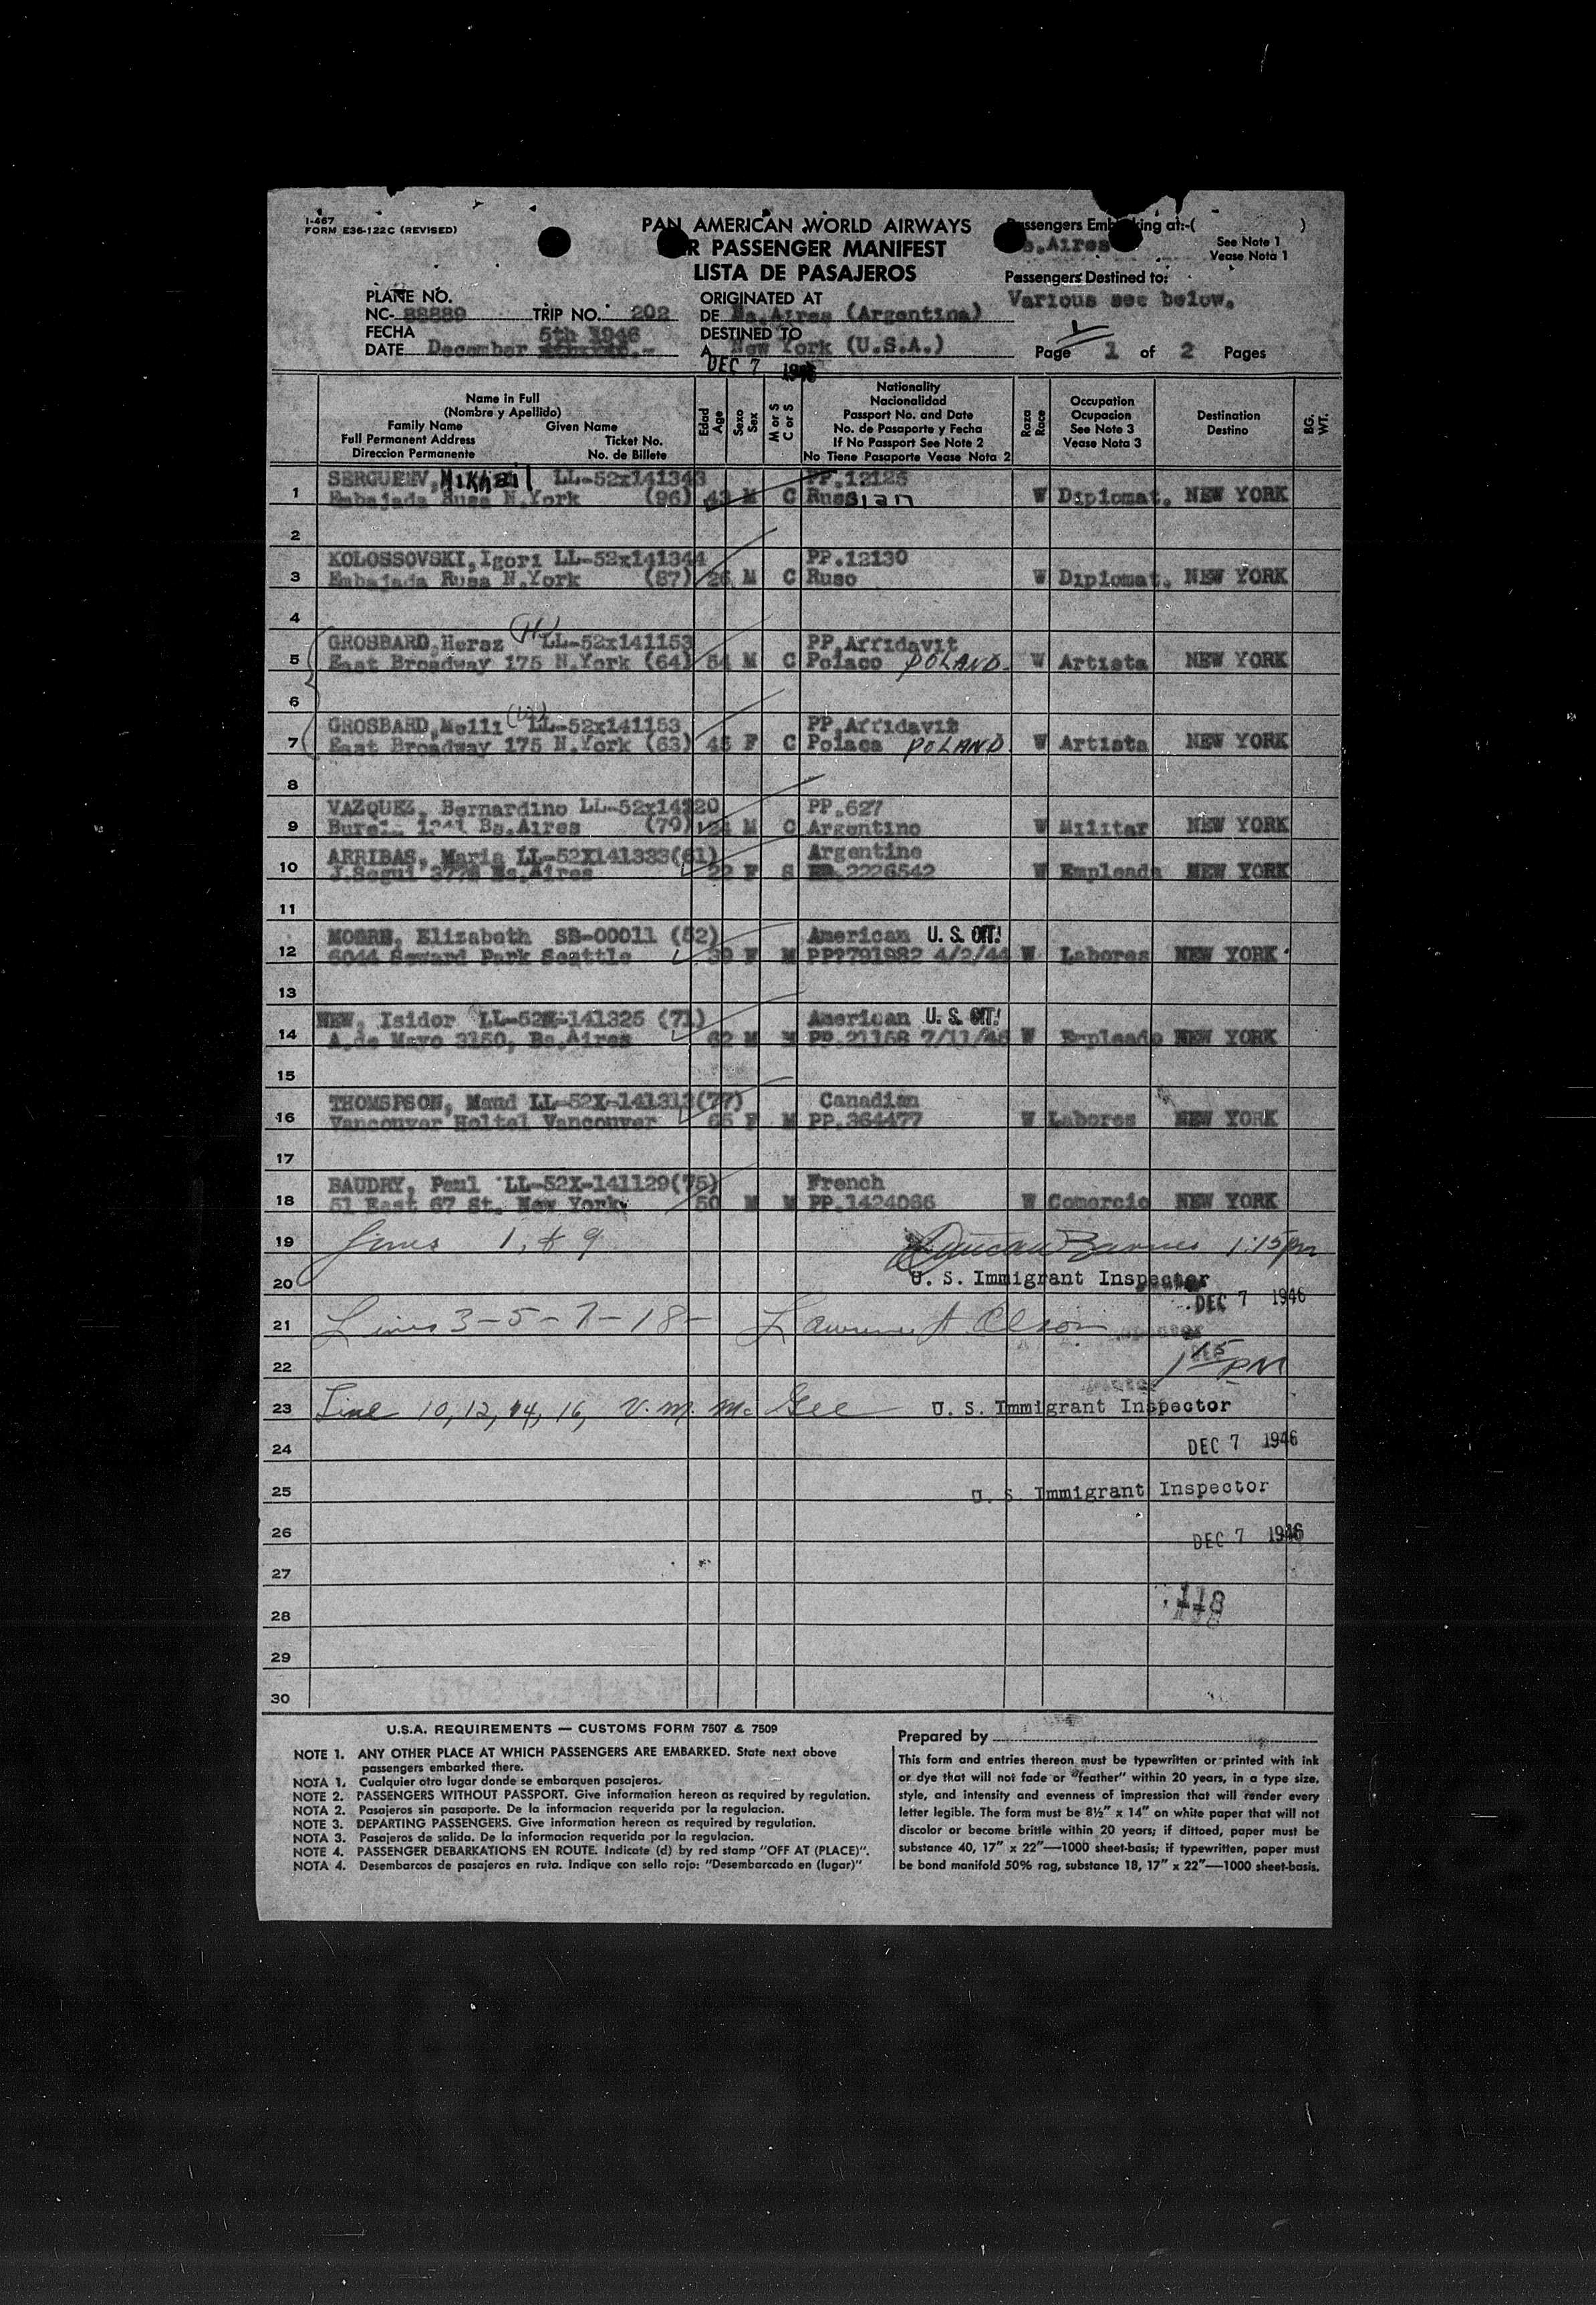 I-467
FORM E36-122C (REVISED)
PAN AMERICAN WORLD AIRWAYS
R PASSENGER MANIFEST
LISTA DE PASAJEROS
Passengers Embarking at:-( )
s.Aires
See Note 1
Vease Nota 1
Passengers Destined to:
Various see below.
PLANE NO.
NC- 88889 TRIP NO. 202
ORIGINATED AT
DE Bs.Aires (Argentina)
FECHA
DATE December 5th 1946
DESTINED TO
A New York (U.S.A.)
DEC 7 1946
Page 1 of 2 Pages
Name in Full
(Nombre y Apellido)
Family Name Given Name
Full Permanent Address Ticket No.
Direccion Permanente No. de Billete
Edad
Age
Sexo
Sex
M or S
C or S
Nationality
Nacionalidad
Passport No. and Date
No. de Pasaporte y Fecha
If No Passport See Note 2
No Tiene Pasaporte Vease Nota 2
Raza
Race
Occupation
Ocupacion
See Note 3
Vease Nota 3
Destination
Destino
BG.
WT.
SERGUEEV, Mikhail LL-52x141343 PP.12126
1 Embajada Rusa N.York (96) 43 M C Russian W Diplomat. NEW YORK
2
KOLOSSOVSKI,Igori LL-52x141344 PP.12130
3 Embajada Rusa N.York (87) 26 M C Ruso W Diplomat. NEW YORK
4
GROSBARD,Hersz (H) LL-52x141153 PP.Affidavit
5 East Broadway 175 N.York (64) 54 M C Polaco POLAND W Artista NEW YORK
6
GROSBARD,Melli (W) LL-52x141153 PP.Affidavit
7 East Broadway 175 N.York (63) 45 F C Polaca POLAND W Artista NEW YORK
8
VAZQUEZ, Bernardino LL-52x14120 PP.627
9 1341 Bs.Aires (79) 24 M C Argentino W Militar NEW YORK
ARRIBAS, Maria LL-52X141333(61) Argentine
10 J.Segui 377 Bs.Aires 22 F S 2226542 W Empleada NEW YORK
11
MOORE, Elizabeth SB-00011 (52) American U. S. CIT!
12 6044 Seward Park Seattle 39 F M PP?791982 4/2/44 W Labores NEW YORK
13
NEW, Isidor LL-52X-141325 (71) American U. S. CIT!
14 A.de Mayo 3150, Bs.Aires 62 M M PP.21158 7/11/45 W Empleado NEW YORK
15
THOMSPSON, Maud LL-52X-141313(77) Canadian
16 Vancouver Holtel Vancouver 65 F M PP.364477 W Labores NEW YORK
17
BAUDRY, Paul LL-52X-141129(75) French
18 51 East 67 St. New York 50 M M PP.1424066 W Comercio NEW YORK
19 Lines 1, & 9 Duncan Barnes 1:15 pm
20 U. S. Immigrant Inspector
DEC 7 1946
21 Lines 3-5-7-18- Lawrence A. Olson
22 1 15 PM
23 Line 10, 12, 14, 16, V. M. Mc Gee U. S. Immigrant Inspector
24 DEC 7 1946
25 U. S. Immigrant Inspector
26 DEC 7 1946
27
28 118
29
30
U.S.A. REQUIREMENTS — CUSTOMS FORM 7507 & 7509
NOTE 1. ANY OTHER PLACE AT WHICH PASSENGERS ARE EMBARKED. State next above
passengers embarked there.
NOTA 1. Cualquier otro lugar donde se embarquen pasajeros.
NOTE 2. PASSENGERS WITHOUT PASSPORT. Give information hereon as required by regulation.
NOTA 2. Pasajeros sin pasaporte. De la informacion requerida por la regulacion.
NOTE 3. DEPARTING PASSENGERS. Give information hereon as required by regulation.
NOTA 3. Pasajeros de salida. De la informacion requerida por la regulacion.
NOTE 4. PASSENGER DEBARKATIONS EN ROUTE. Indicate (d) by red stamp "OFF AT (PLACE)".
NOTA 4. Desembarcos de pasajeros en ruta. Indique con sello rojo: "Desembarcado en (lugar)"
Prepared by
This form and entries thereon must be typewritten or printed with ink
or dye that will not fade or "feather" within 20 years, in a type size,
style, and intensity and evenness of impression that will render every
letter legible. The form must be 8½" x 14" on white paper that will not
discolor or become brittle within 20 years; if dittoed, paper must be
substance 40, 17" x 22"—1000 sheet-basis; if typewritten, paper must
be bond manifold 50% rag, substance 18, 17" x 22"—1000 sheet-basis.